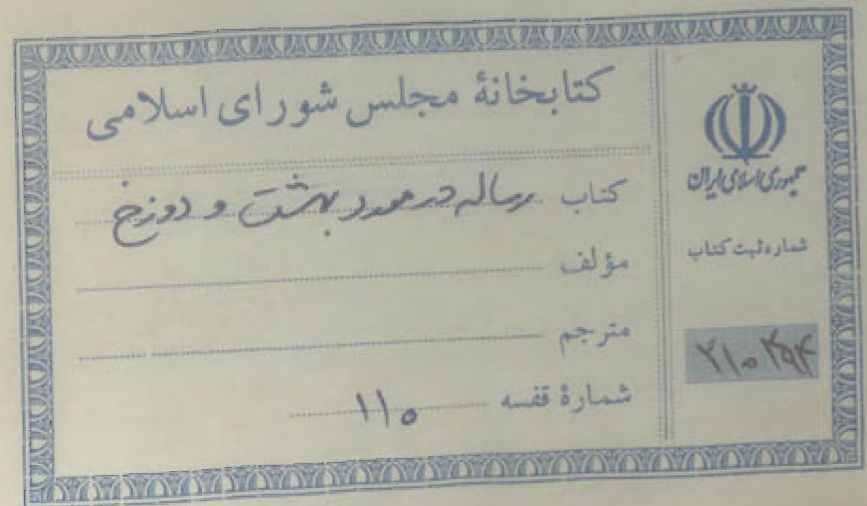 کتابخانهٔ مجلس شورای اسلامی
کتاب رساله در مورد بهشت و دوزخ
مؤلف
مترجم
شمارهٔ قفسه ۱۱۵
جمهوری اسلامی ایران
شماره ثبت کتاب
۲۱۰۴۹۴